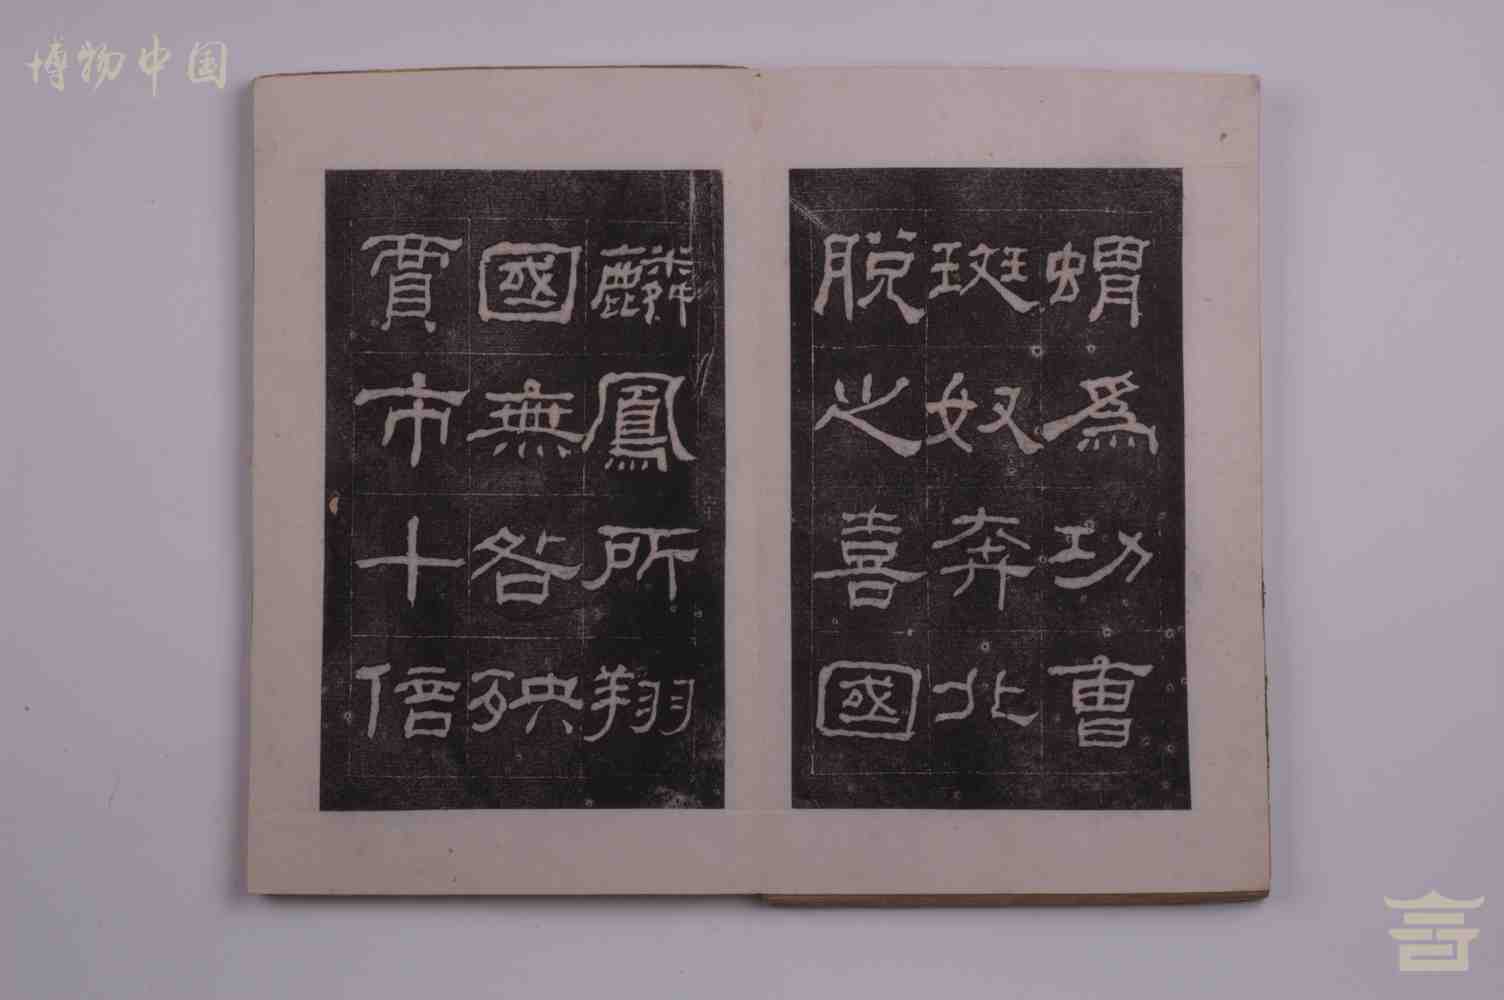 博物中国
蝟為功曹
斑奴奔北
脱之喜國
麟鳳所翔
國無咎殃
賈市十倍